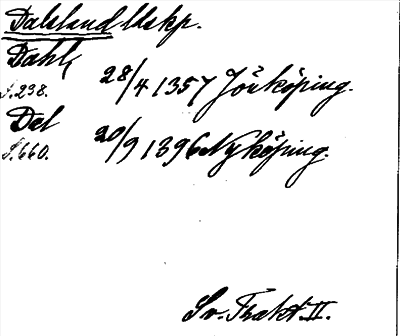 Dalsland ldskp.
Dahl,
S. 298. 28/4 1357 Jönköping.
Dal
S. 660. 20/9 1396 Nyköping.
Sv. Trakt. II.